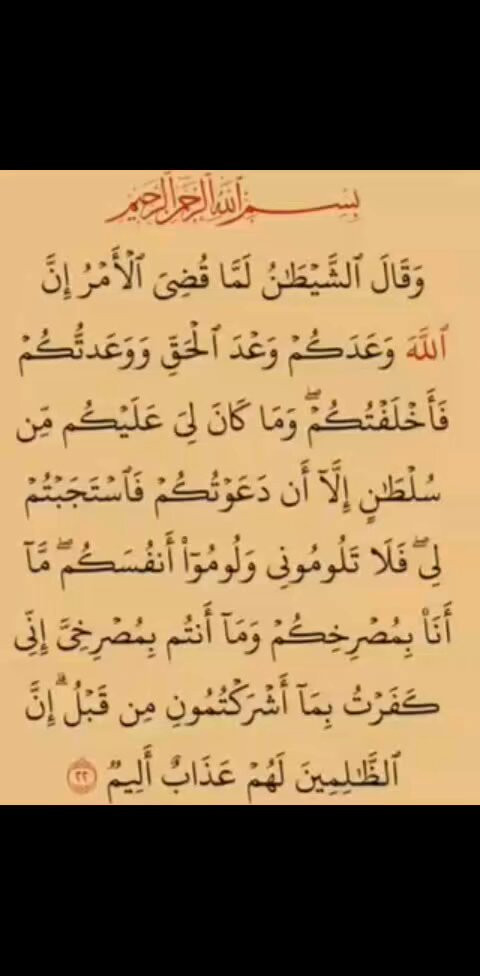 بِسْمِ ٱللَّهِ ٱلرَّحْمَٰنِ ٱلرَّحِيمِ
وَقَالَ ٱلشَّيْطَٰنُ لَمَّا قُضِيَ ٱلْأَمْرُ إِنَّ
ٱللَّهَ وَعَدَكُمْ وَعْدَ ٱلْحَقِّ وَوَعَدتُّكُمْ
فَأَخْلَفْتُكُمْۖ وَمَا كَانَ لِيَ عَلَيْكُم مِّن
سُلْطَٰنٍ إِلَّآ أَن دَعَوْتُكُمْ فَٱسْتَجَبْتُمْ
لِيۖ فَلَا تَلُومُونِي وَلُومُوٓا۟ أَنفُسَكُمۖ مَّآ
أَنَا۠ بِمُصْرِخِكُمْ وَمَآ أَنتُم بِمُصْرِخِيَّ إِنِّي
كَفَرْتُ بِمَآ أَشْرَكْتُمُونِ مِن قَبْلُۗ إِنَّ
ٱلظَّٰلِمِينَ لَهُمْ عَذَابٌ أَلِيمٌ ٢٢